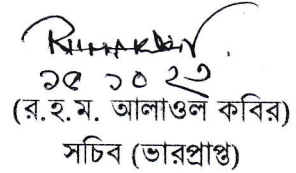 ১৫ ১০ ২৩
(র.হ.ম. আলাওল কবির)
সচিব (ভারপ্রাপ্ত)